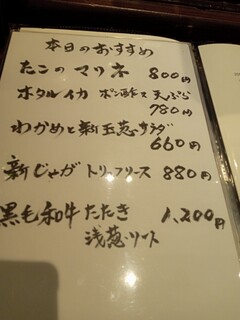 本日のおすすめ
たこのマリネ 800円
ホタルイカ ポン酢 天ぷら
780円
わかめと新玉葱サラダ
660円
新じゃが トリュフソース 880円
黒毛和牛たたき 1,200円
浅葱ソート